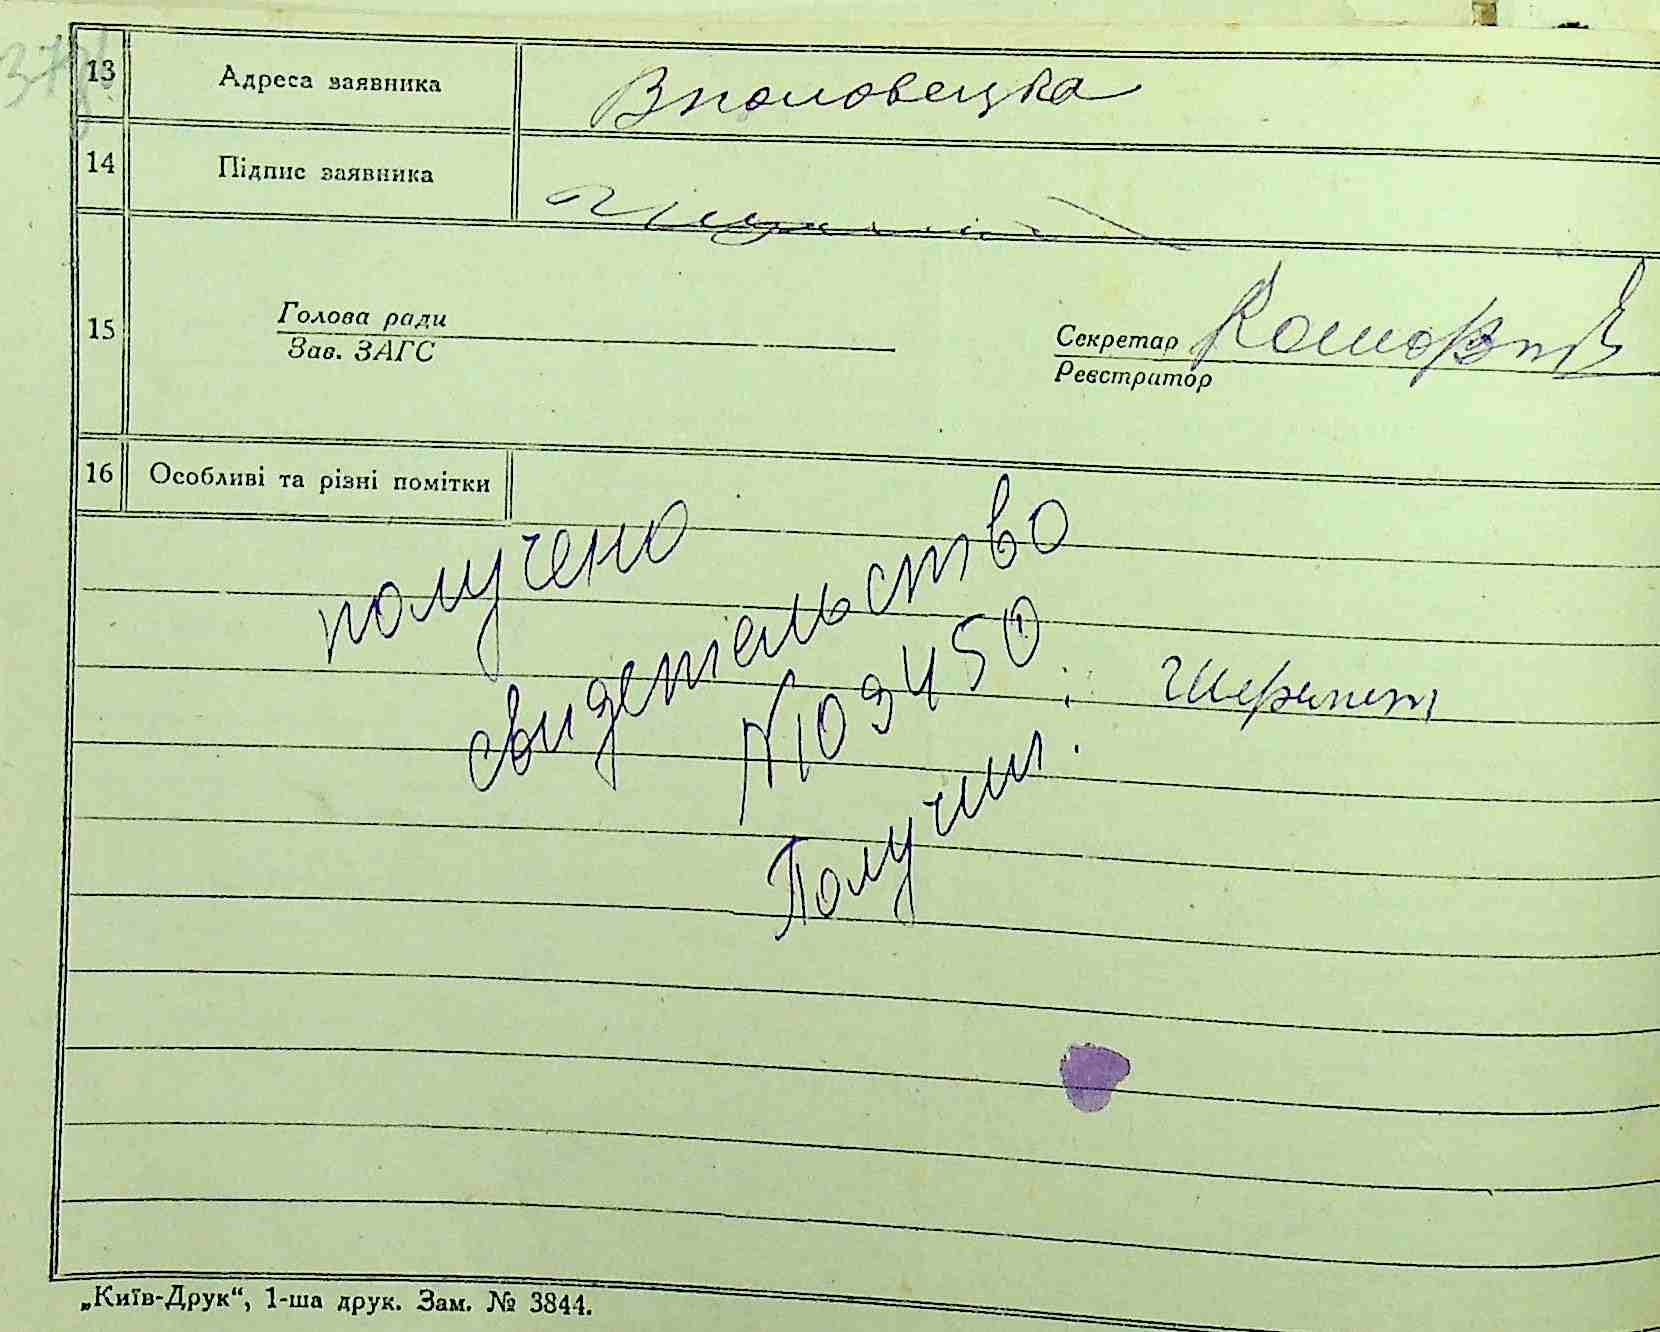 13 Адреса заявника Вполовецка
14 Підпис заявника
15 Голова ради
Зав. ЗАГС
Секретар
Реєстратор
16 Особливі та різні помітки
получено
свидетельство
№ 109450
Получил:
„Київ-Друк“, 1-ша друк. Зам. № 3844.